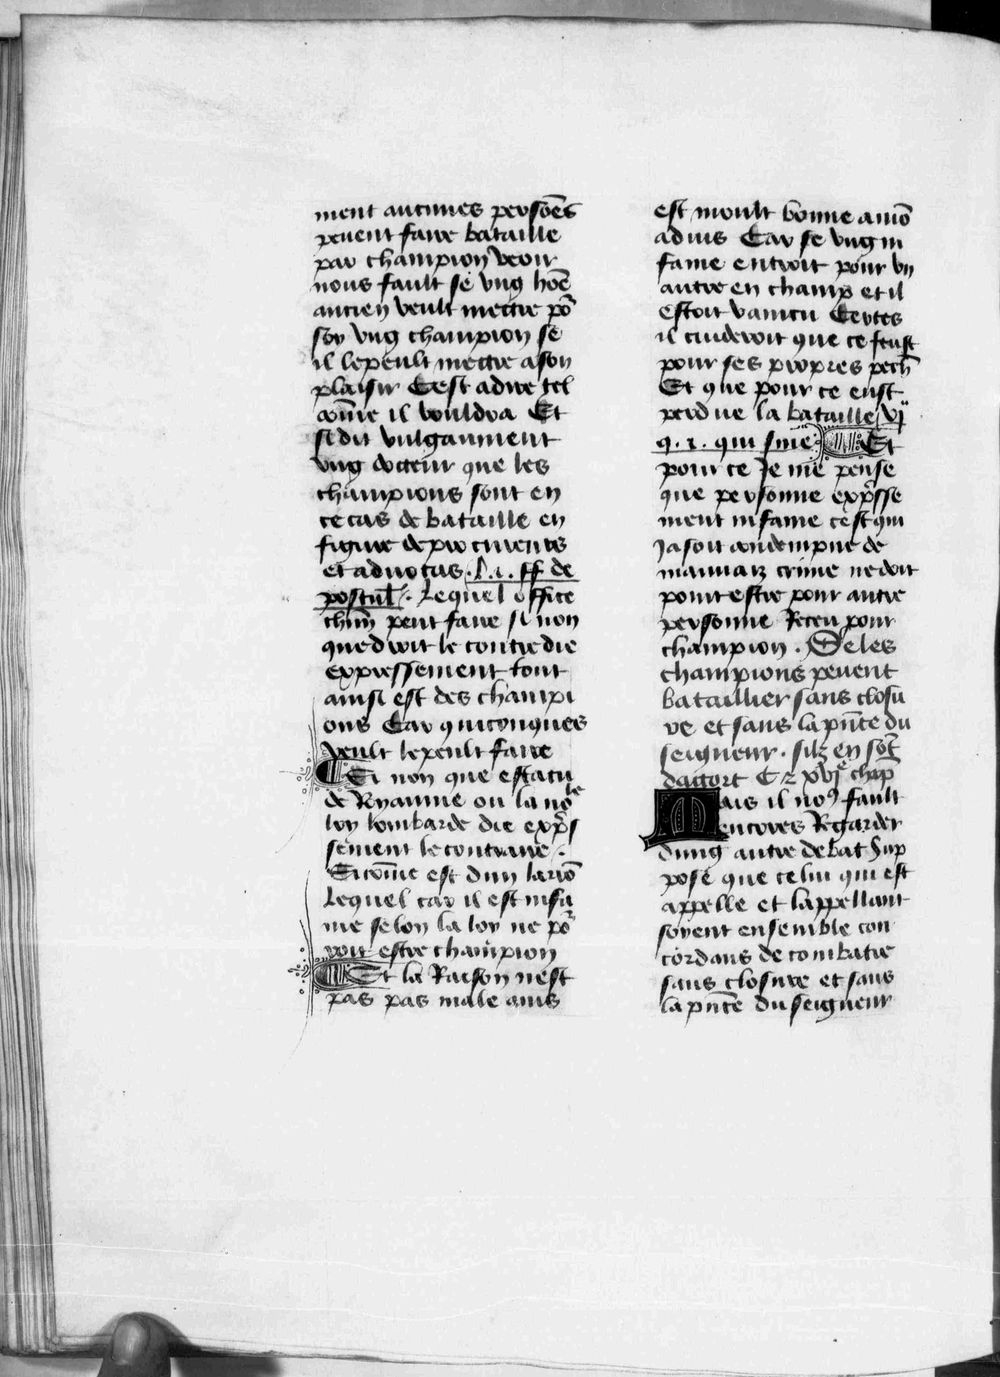 ment aucunes persoēs
peuent faire bataille
par champion veoir
nous fault se ung hōe
ancien veult mettre po᷑
soy ung champion se
il lepeult mettre a son
plaisir Cest adire tel
cōme il vouldra Et
se dit vulgaument
ung docteur que les
champions sont en
ce cas de bataille en
figure de procureurs
et aduocas .l.i. ff de
postul̄. Lequel office
chūn peut faire si non
que droit le contredie
expressement tout
ainsi est des champi
ons Car quiconques
veult lepeult faire
Si non que estatu
de Royaume ou la nob̾le
loy lombarde die exp̄s
sement le contraire.
Si cōme est dun larrō
Lequel car il est infa
me selon la loy ne po᷑
roit estre champion
Et la Raison nest
pas pas male ains
est moult bonne a mō
aduis Car se ung in
fame entroit pour un
autre en champ et il
estoit vaincu Certes
il cuideroit que ce feust
pour ses propres pech̄
Et que pour ce eust
perdue la bataille vj
q. i. qui sine Et
pour ce Je me pense
que personne exp̄sse
ment infame cest qui
Ja soit condempne de
mauuaiz crime ne doit
point estre pour autre
personne Receu pour
champion. Se les
champions peuent
bataillier sans closu
re et sans la pn̄ce du
seigneur. silz en sōt
dacort C z xvje chap̄
Mais il nous fault
encores Regarder
dung autre debat Sup
pose que celui qui est
appelle et lappellant
soyent ensemble con
cordans de combatre
sans closure et sans
la pn̄ce du seigneur